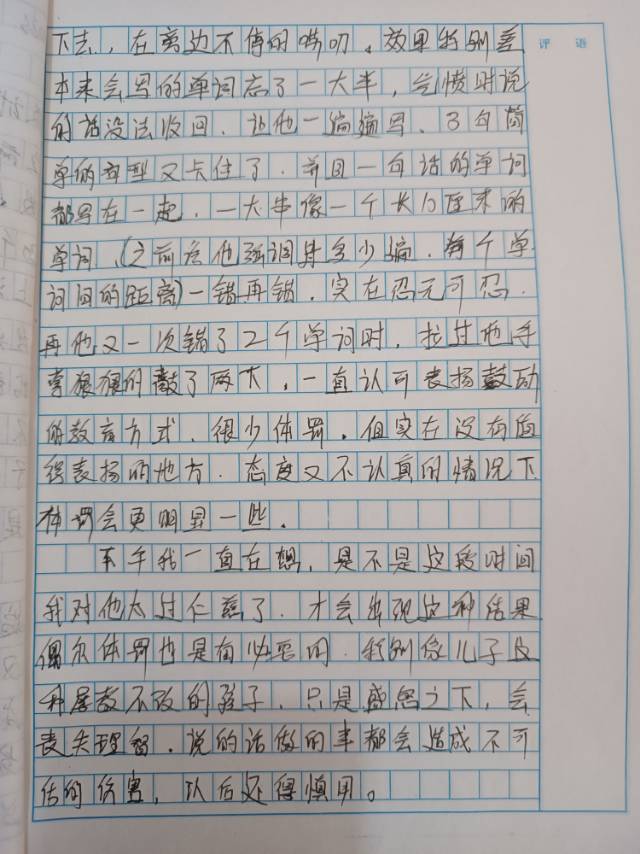 评 语
下去，在旁边不停的唠叨。效果特别差
本来会写的单词忘了一大半，气愤时说
的话没法收回．让他一遍遍写．3句简
单的句型又卡住了．并且一句话的单词
都写在一起．一大串像一个长10厘米的
单词．(之前为他强调过多少遍．每个单
词间的距离)一错再错．实在忍无可忍．
再他又一次错了2个单词时，找过他手
掌狠狠的敲了两下，一直认可表扬鼓励
的教育方式．很少体罚．但实在没有值
得表扬的地方．态度又不认真的情况下
体罚会更明显一些．
下午我一直在想，是不是这段时间
我对他太过仁慈了．才会出现这种结果
偶尔体罚也是有必要的．特别像儿子这
种屡教不改的孩子．只是盛怒之下，会
丧失理智．说的话做的事都会造成不可
估的伤害，以后还得慎用。